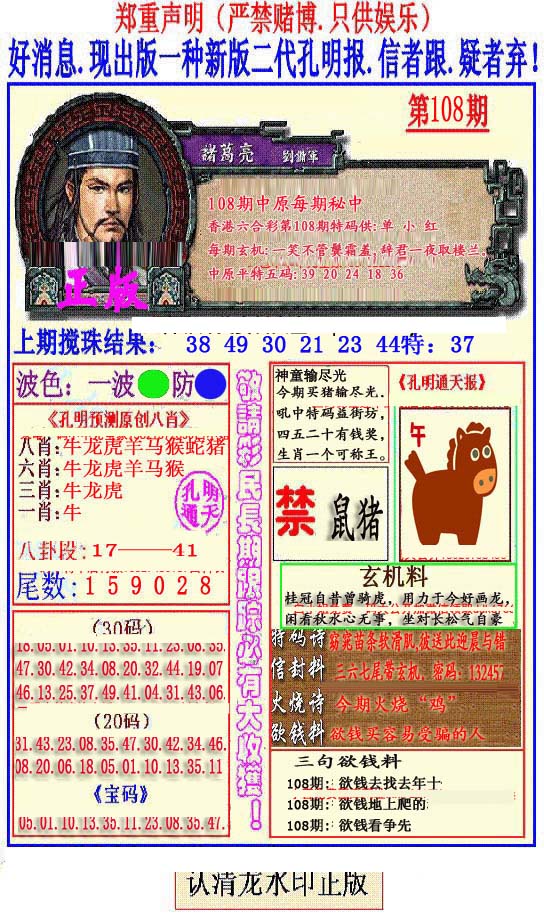 郑重声明（严禁赌博.只供娱乐）
好消息.现出版一种新版二代孔明报.信者跟.疑者弃!
第108期
諸葛亮 劉備軍
108期中原每期秘中
香港六合彩第108期特码供:单 小 红
每期玄机:一笑不管爨霜盖,辞君一夜取楼兰.
中原平特五码:39 20 24 18 36
正版
上期搅珠结果： 38 49 30 21 23 44特：37
波色：一波 防
《孔明预测原创八肖》
八肖:牛龙虎羊马猴蛇猪
六肖:牛龙虎羊马猴
三肖:牛龙虎
一肖:牛
孔明通天
八卦段:17———41
尾数:159028
(30码)
18.05.01.10.13.35.11.23.08.35.
47.30.42.34.08.20.32.44.19.07
46.13.25.37.49.41.04.31.43.06.
(20码)
31.43.23.08.35.47.30.42.34.46.
08.20.06.18.05.01.10.13.35.11
《宝码》
05.01.10.13.35.11.23.08.35.47.
敬請彩民長期跟踪必有大收獲！
神童输尽光
今期买猪输尽光.
吼中特码益街坊,
四五二十有钱奖,
生肖一个可称王。
《孔明通天报》
午
禁 鼠猪
玄机料
桂冠自昔曾骑虎，用力于今好画龙，
闲看秋水心无事，坐对长松气自豪
特码诗 窈窕苗条软滑肌.彼送此迎晨与错
信封料 三六七尾带玄机，密码：132457
火烧诗 今期火烧“鸡”
欲钱料 欲钱买容易受骗的人
三句欲钱料
108期:欲钱去找去年十
108期:欲钱地上爬的
108期:欲钱看争先
认清龙水印正版